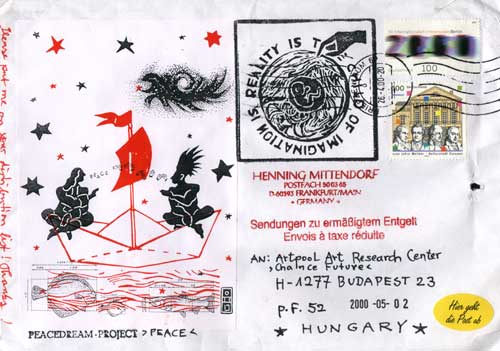 Please put me on your distribution list! Thanks!
PEACE
PEACEDREAM-PROJECT > PEACE <
IMAGINATION IS REALITY IS THE END OF
HENNING MITTENDORF
POSTFACH 50 03 65
D-60393 FRANKFURT/MAIN
* GERMANY *
Sendungen zu ermäßigtem Entgelt
Envois à taxe réduite
100
AN: Artpool Art Research Center
>Chance Future<
H-1277 BUDAPEST 23
P.F. 52
2000 -05- 02
★ HUNGARY ★
Hier geht
die Post ab